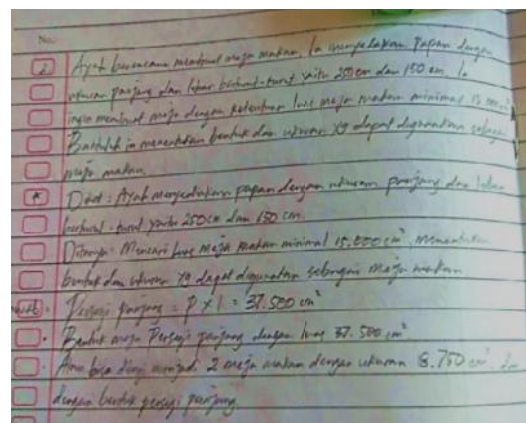 No.
2 Ayah berencana membuat meja makan. Ia menyediakan Papan dengan
ukuran panjang dan lebar berturut-turut yaitu 250 cm dan 150 cm. Ia
ingin membuat meja dengan ketentuan luas meja makan minimal 15.000 cm²
Bantulah ia menentukan bentuk dan ukuran yg dapat digunakan sebagai
meja makan.
* Diket : Ayah menyediakan papan dengan ukuran panjang dan lebar
berturut-turut yaitu 250 cm dan 150 cm.
Ditanya : Mencari luas meja makan minimal 15.000 cm², menentukan
bentuk dan ukuran yg dapat digunakan sebagai meja makan
Persegi panjang = P x l = 37.500 cm²
Bentuk meja Persegi panjang dengan luas 37.500 cm²
bisa menjadi 2 meja makan dengan ukuran 18.750 cm²
dengan bentuk persegi panjang